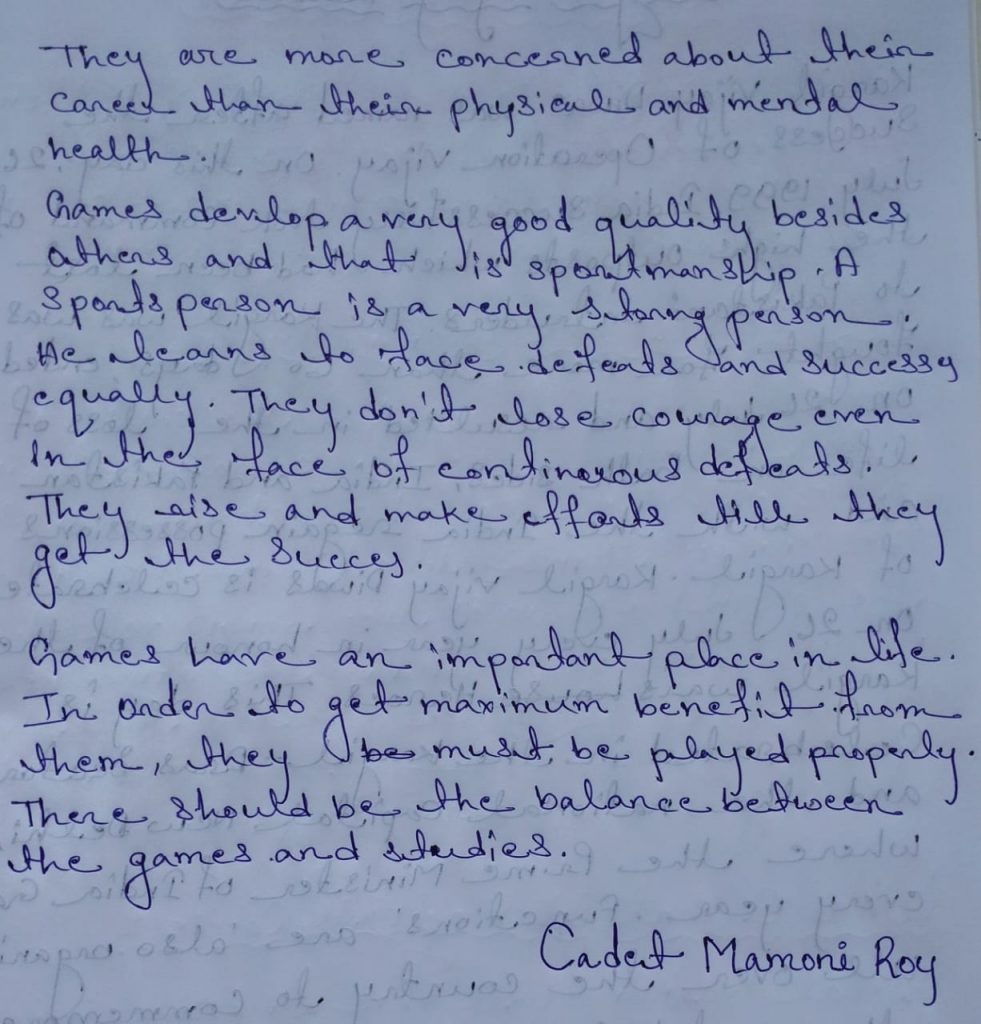 They are more concerned about their
career than their physical and mental
health.
Games devlop a very good quality besides
others and that is sportmanship. A
Sports person is a very strong person.
He learns to face defeats and success
equally. They don't lose courage even
In the face of continuous defeats.
They rise and make efforts till they
get the succes.
Games have an important place in life.
In order to get maximum benefit from
them, they be must be played properly.
There should be the balance between
the games and studies.
Cadet Mamoni Roy